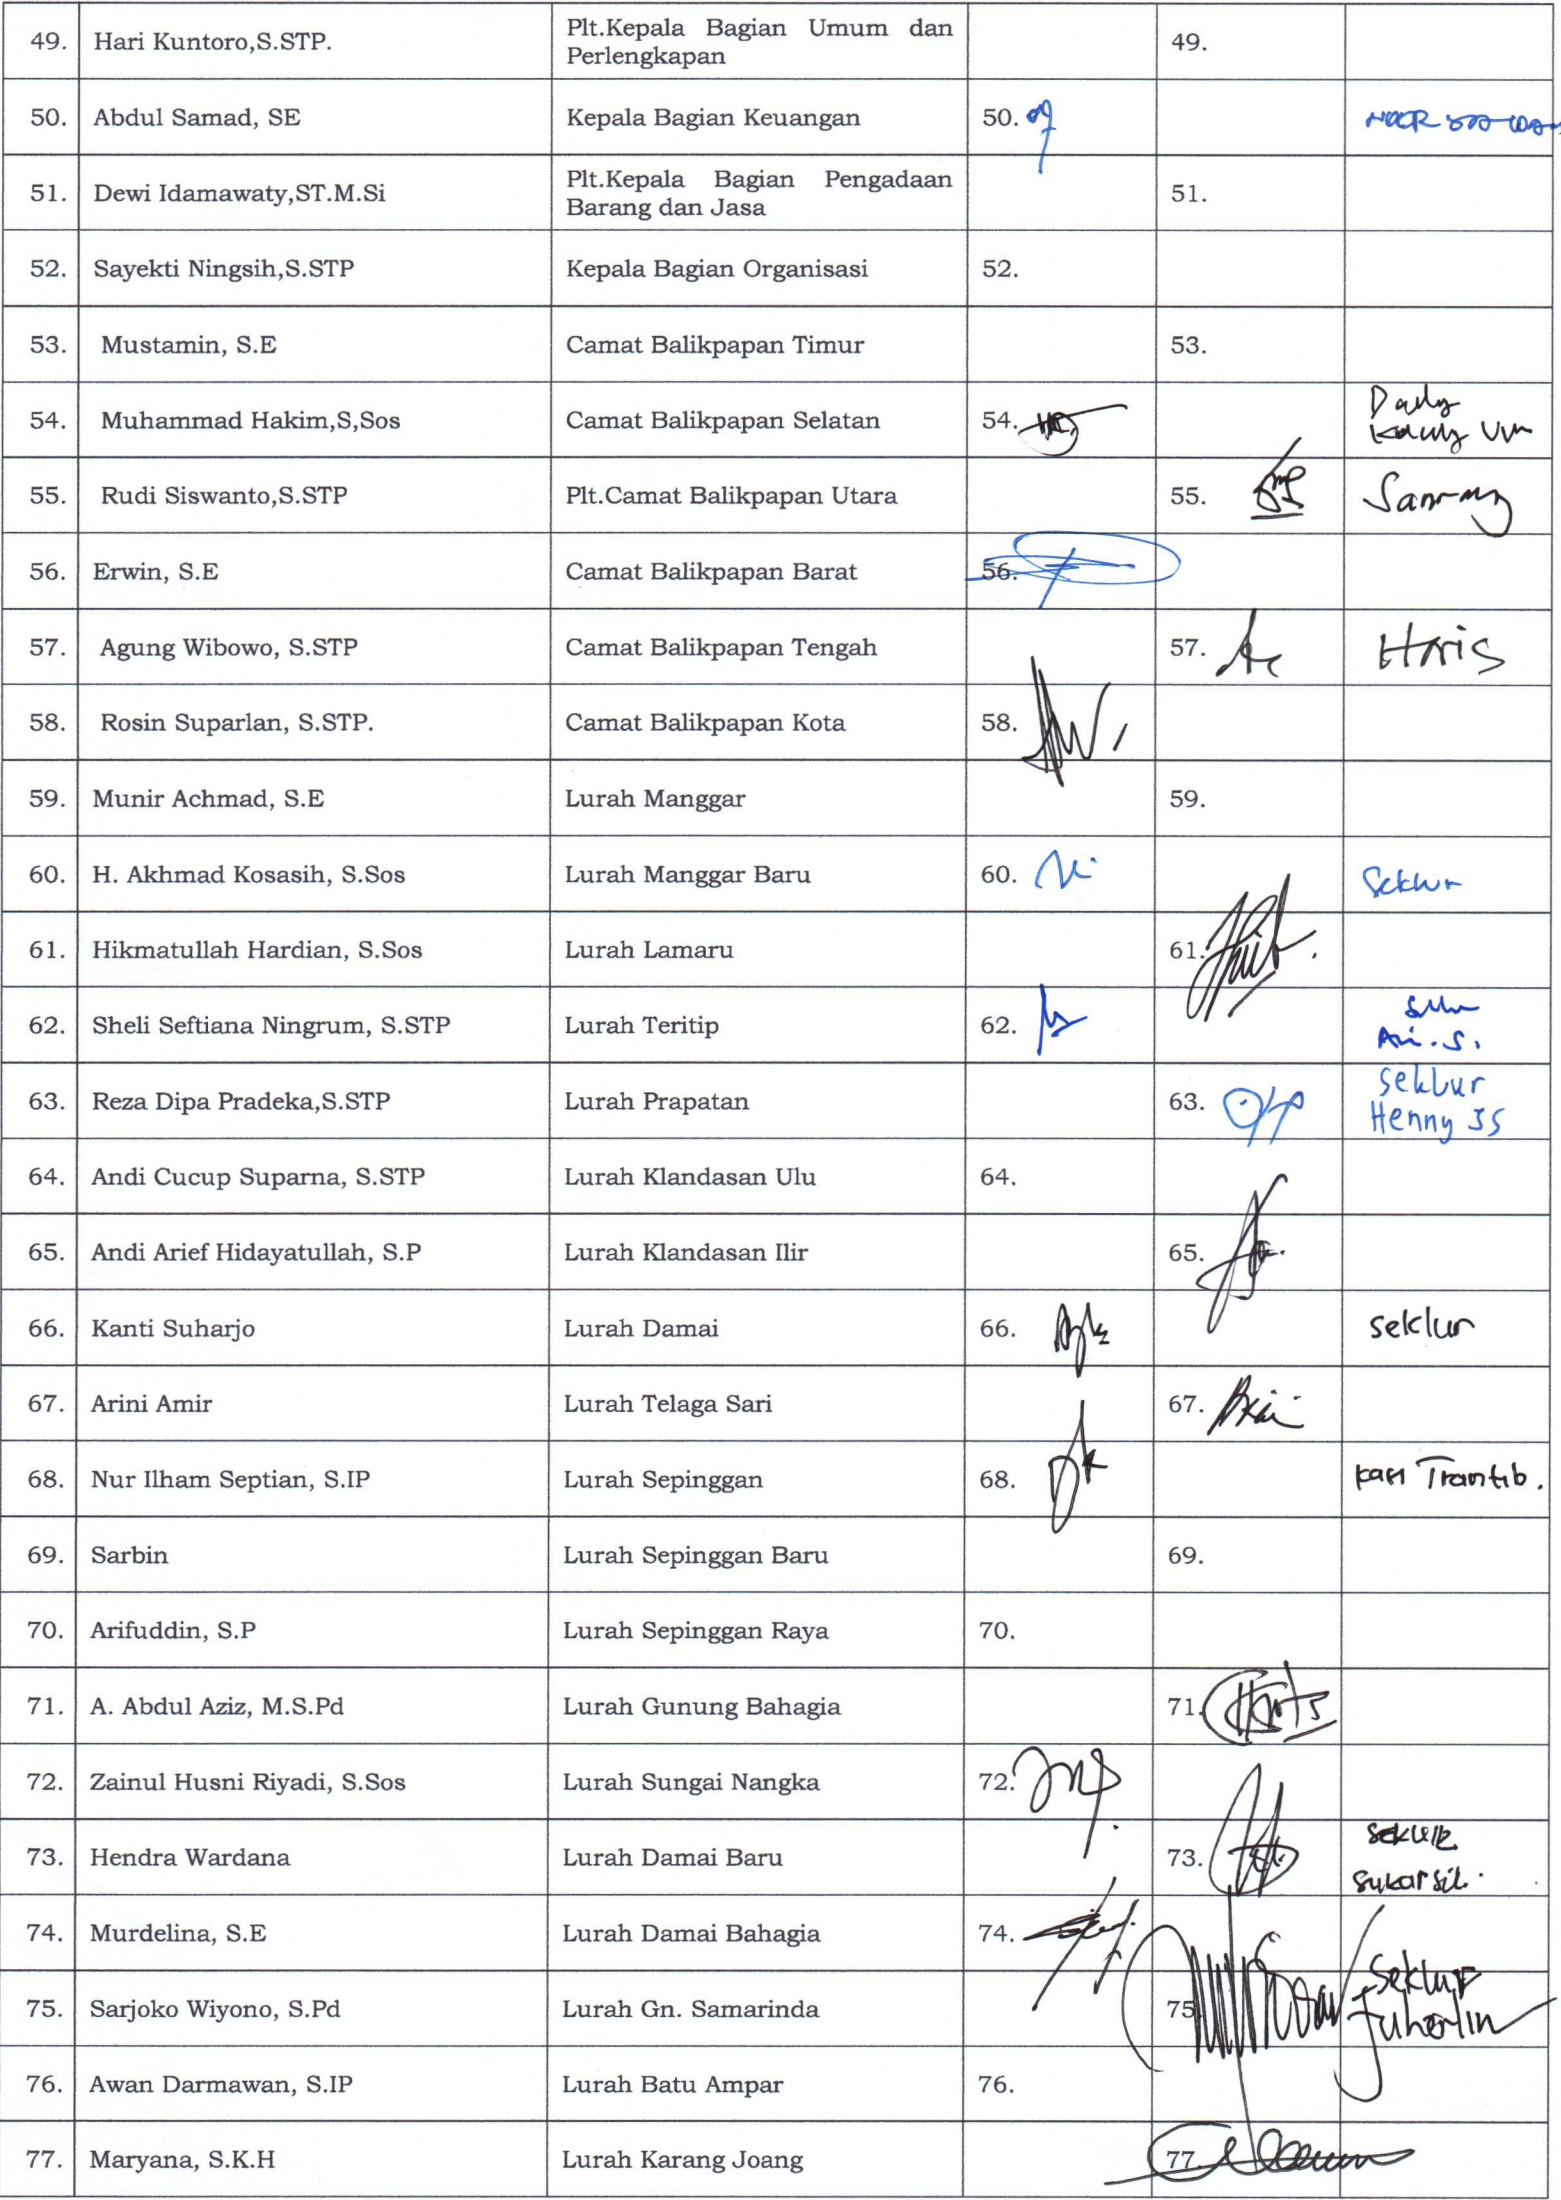 49. Hari Kuntoro,S.STP. Plt.Kepala Bagian Umum dan 49.
Perlengkapan
50. Abdul Samad, SE Kepala Bagian Keuangan 50.
51. Dewi Idamawaty,ST.M.Si Plt.Kepala Bagian Pengadaan 51.
Barang dan Jasa
52. Sayekti Ningsih,S.STP Kepala Bagian Organisasi 52.
53. Mustamin, S.E Camat Balikpapan Timur 53.
54. Muhammad Hakim,S,Sos Camat Balikpapan Selatan 54.
55. Rudi Siswanto,S.STP Plt.Camat Balikpapan Utara 55.
56. Erwin, S.E Camat Balikpapan Barat 56.
57. Agung Wibowo, S.STP Camat Balikpapan Tengah 57. Haris
58. Rosin Suparlan, S.STP. Camat Balikpapan Kota 58.
59. Munir Achmad, S.E Lurah Manggar 59.
60. H. Akhmad Kosasih, S.Sos Lurah Manggar Baru 60. Seklur
61. Hikmatullah Hardian, S.Sos Lurah Lamaru 61.
62. Sheli Seftiana Ningrum, S.STP Lurah Teritip 62.
Ari. S.
63. Reza Dipa Pradeka,S.STP Lurah Prapatan 63. Seklur
Henny JS
64. Andi Cucup Suparna, S.STP Lurah Klandasan Ulu 64.
65. Andi Arief Hidayatullah, S.P Lurah Klandasan Ilir 65.
66. Kanti Suharjo Lurah Damai 66. seklur
67. Arini Amir Lurah Telaga Sari 67.
68. Nur Ilham Septian, S.IP Lurah Sepinggan 68. Kasi Trantib.
69. Sarbin Lurah Sepinggan Baru 69.
70. Arifuddin, S.P Lurah Sepinggan Raya 70.
71. A. Abdul Aziz, M.S.Pd Lurah Gunung Bahagia 71.
72. Zainul Husni Riyadi, S.Sos Lurah Sungai Nangka 72.
73. Hendra Wardana Lurah Damai Baru 73.
74. Murdelina, S.E Lurah Damai Bahagia 74.
75. Sarjoko Wiyono, S.Pd Lurah Gn. Samarinda 75 Seklur
Juherlin
76. Awan Darmawan, S.IP Lurah Batu Ampar 76.
77. Maryana, S.K.H Lurah Karang Joang 77.